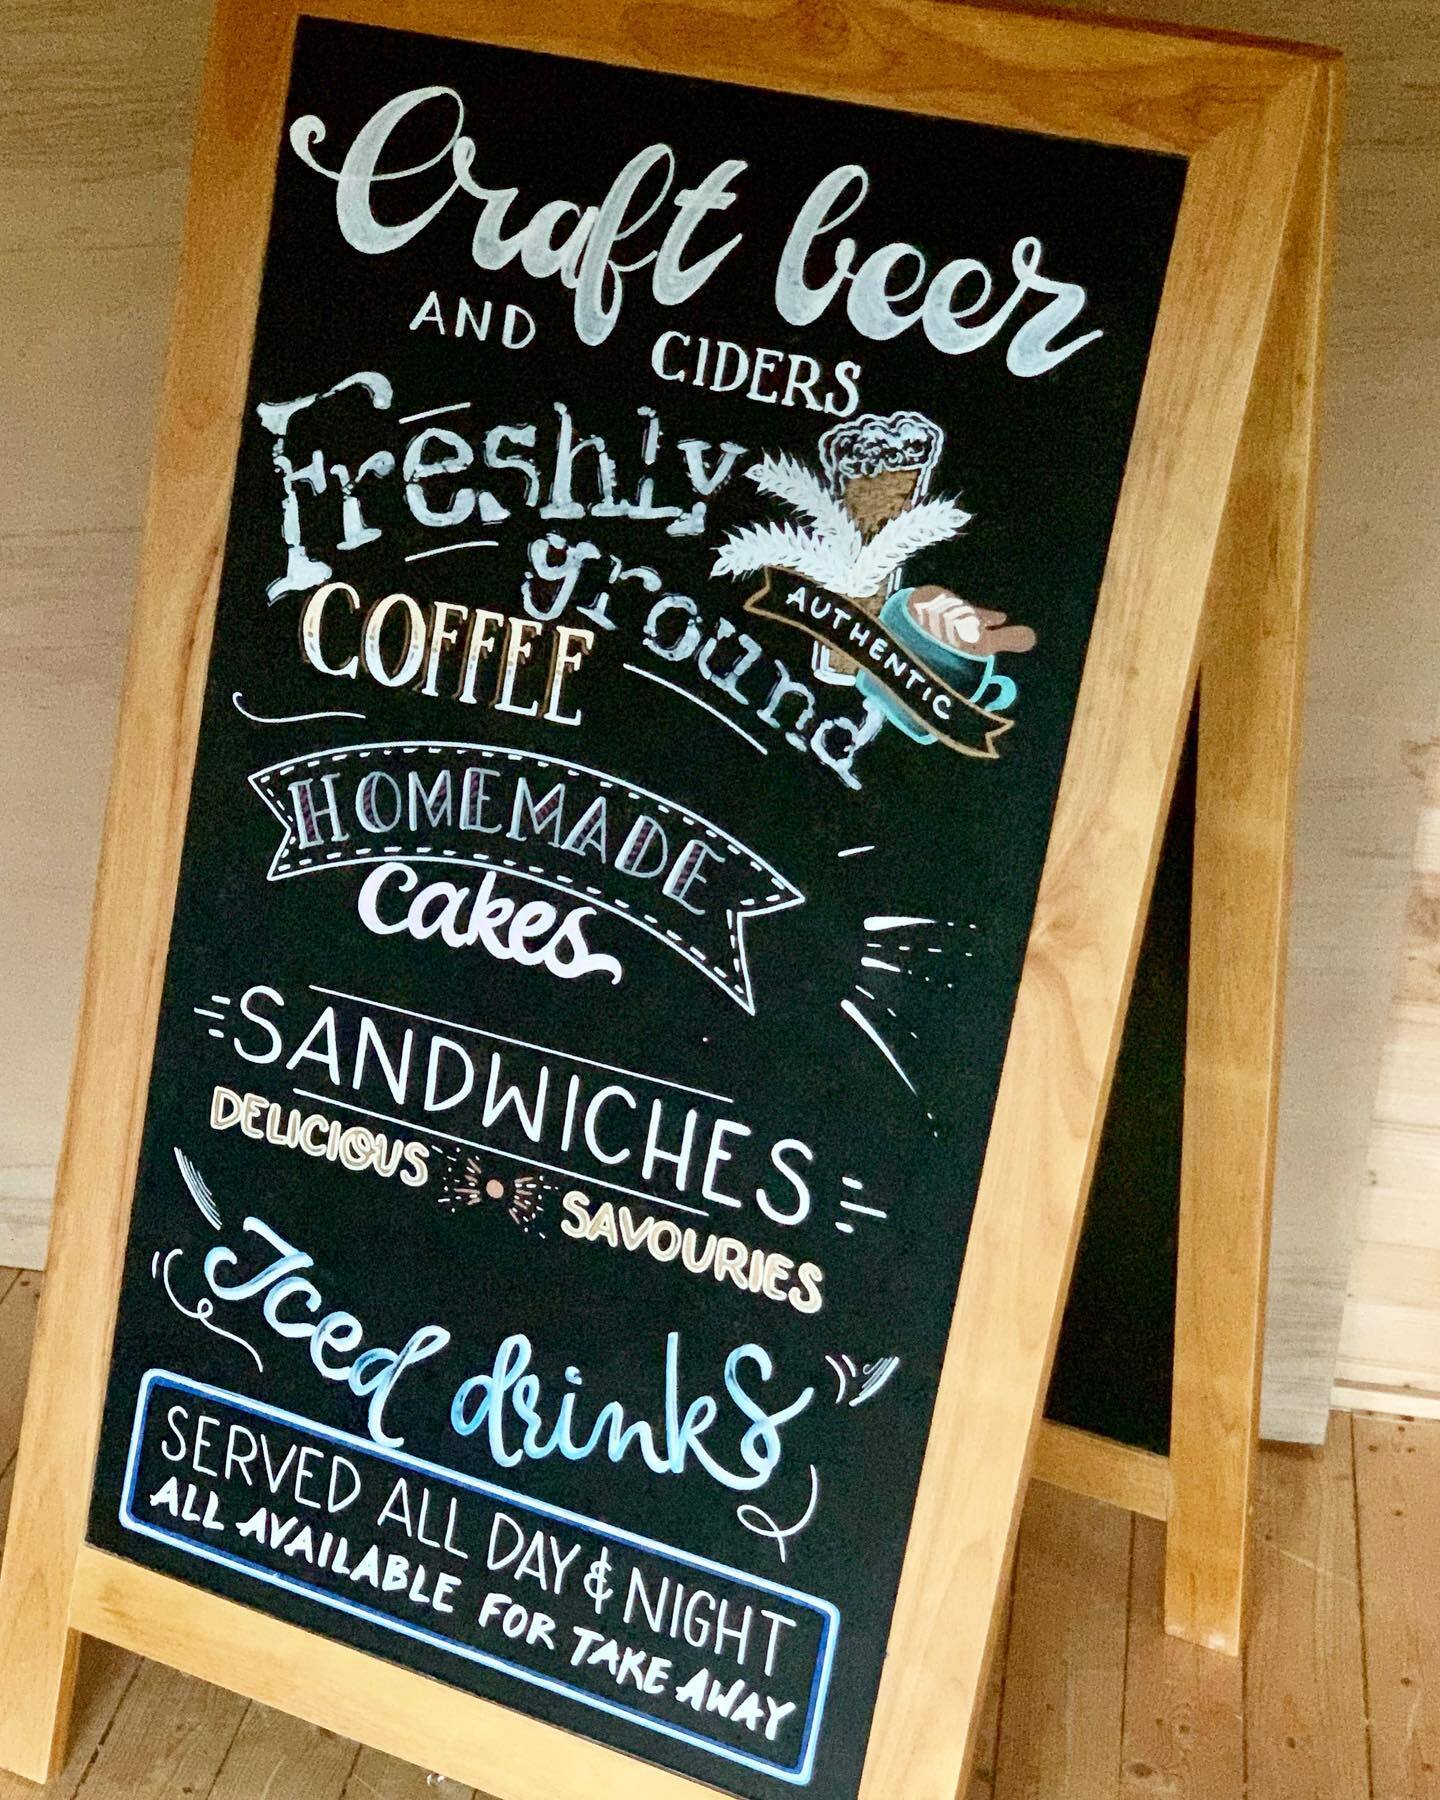 Craft beer
AND CIDERS
Freshly
ground
COFFEE
AUTHENTIC
HOMEMADE
cakes
SANDWICHES
DELICIOUS SAVOURIES
Iced drinks
SERVED ALL DAY & NIGHT
ALL AVAILABLE FOR TAKE AWAY